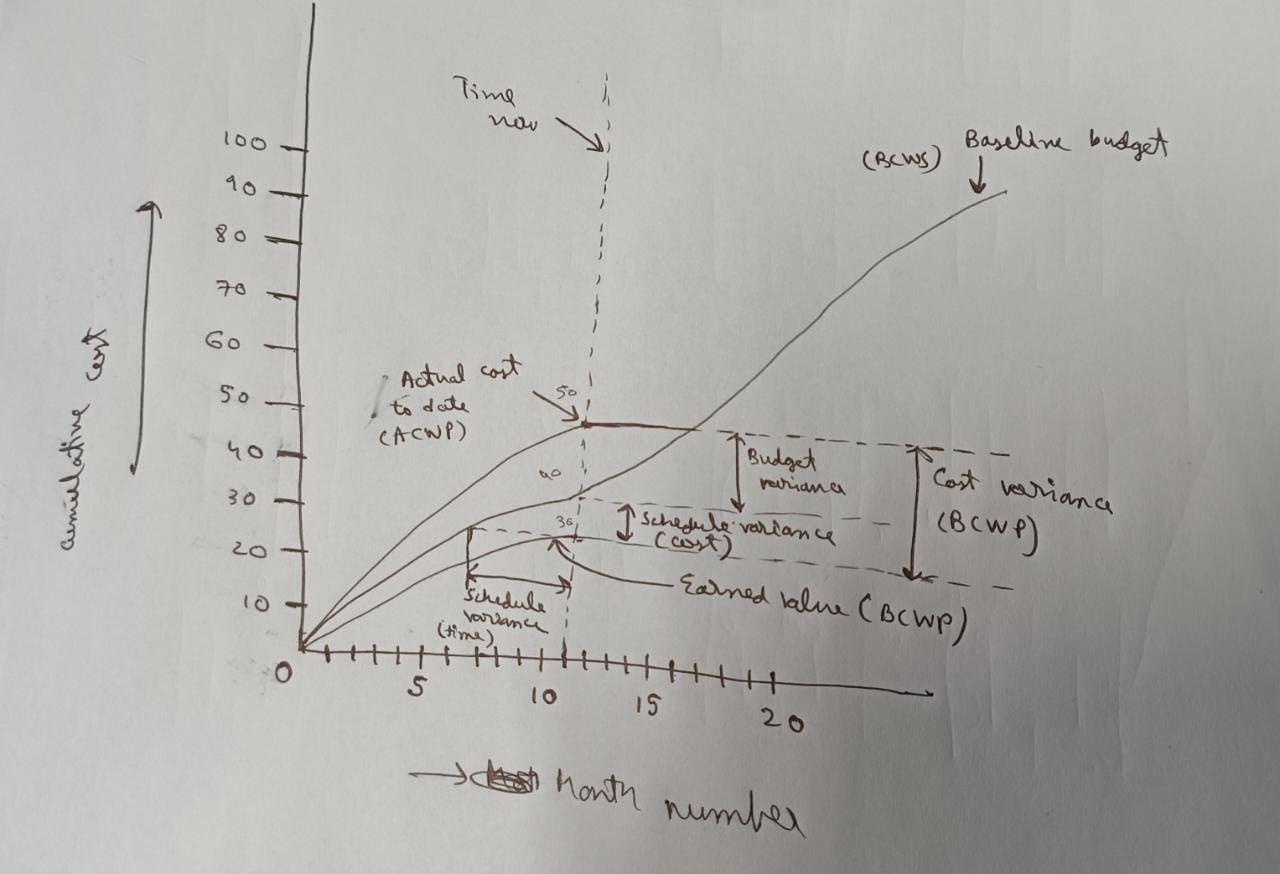 Time
now
(BCWS) Baseline budget
100
90
80
70
60
50
40
30
20
10
0
Cumulative cost
Actual cost
to date
(ACWP)
50
40
Budget
variance
Cost variance
(BCWP)
36
Schedule variance
(cost)
Earned value (BCWP)
Schedule
variance
(time)
5
10
15
20
Month number